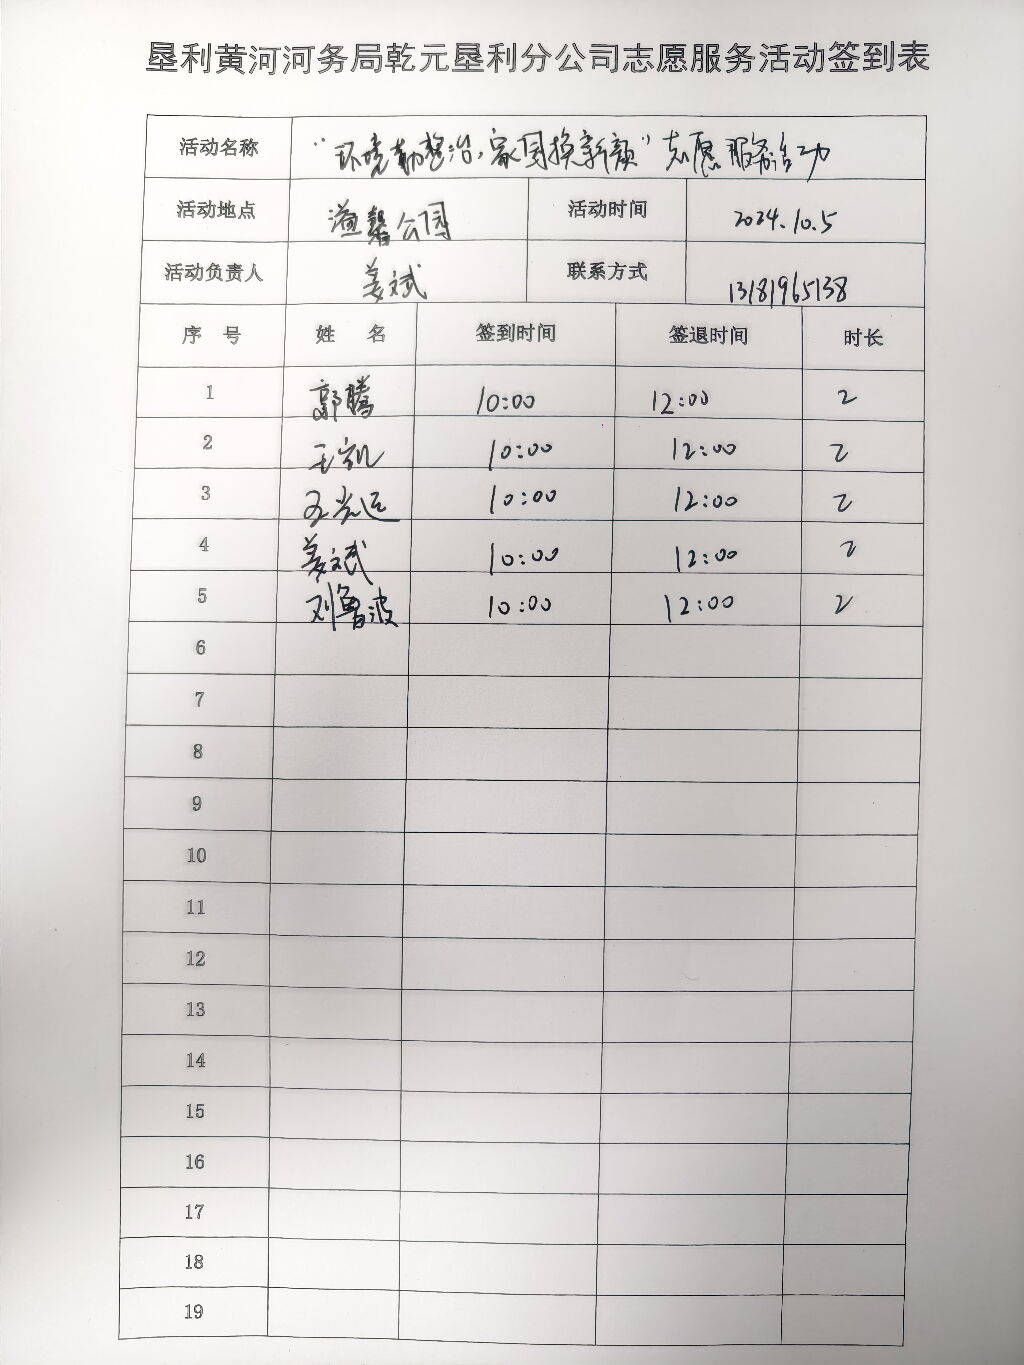 垦利黄河河务局乾元垦利分公司志愿服务活动签到表
活动名称 “环境勤整治，家园换新颜”志愿服务活动
活动地点 溢馨公园 活动时间 2024.10.5
活动负责人 姜斌 联系方式 13181965138
序 号 姓 名 签到时间 签退时间 时长
1 郭腾 10:00 12:00 2
2 王凯 10:00 12:00 2
3 王光远 10:00 12:00 2
4 姜斌 10:00 12:00 2
5 刘鲁波 10:00 12:00 2
6
7
8
9
10
11
12
13
14
15
16
17
18
19